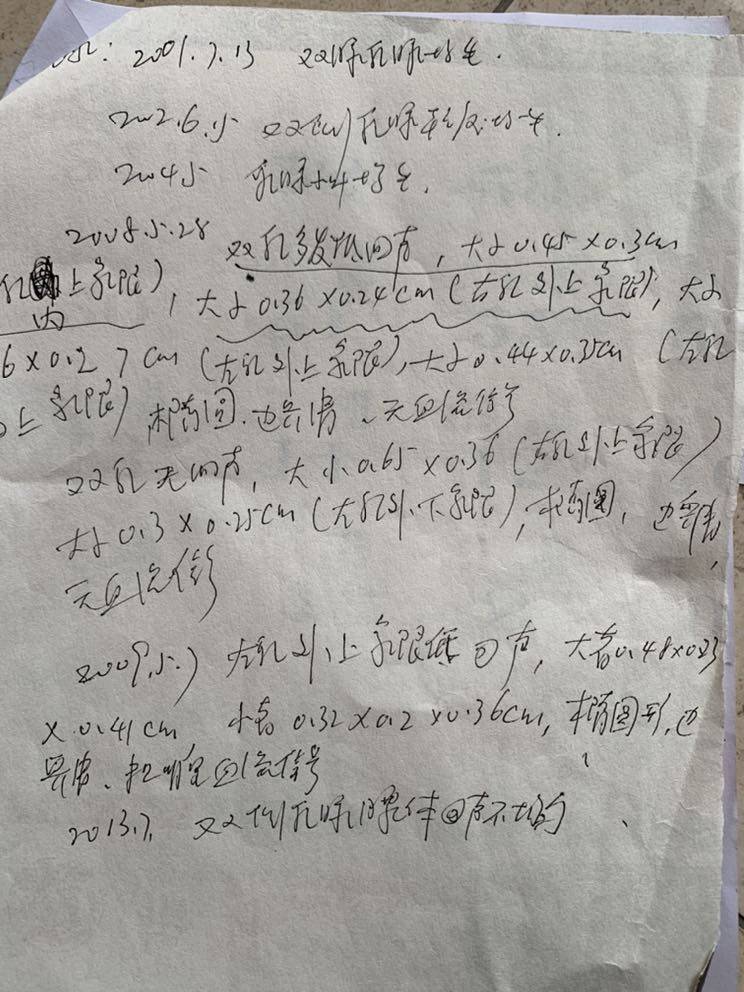 2001.7.13 双侧乳腺增生.
2002.6.5 双侧乳腺轻度增生.
2004.5 乳腺小叶增生.
2008.5.28 双乳多发低回声, 大小0.45×0.3cm
乳内上象限), 大小0.36×0.24cm(右乳外上象限), 大小
6×0.27cm(左乳外上象限), 大小0.44×0.35cm (左乳
上象限) 椭圆圆、边界清、无血流信号
双乳无回声, 大小0.65×0.36(右乳外上象限)
大小0.3×0.25cm(左乳外下象限), 椭圆, 边界清,
无血流信号
2009.5.7 左乳外上象限低回声, 大者0.48×0.23
×0.41cm 小者0.32×0.2×0.36cm, 椭圆形, 边
界清、未见明显血流信号
2013.7. 双侧乳腺腺体回声不均匀、